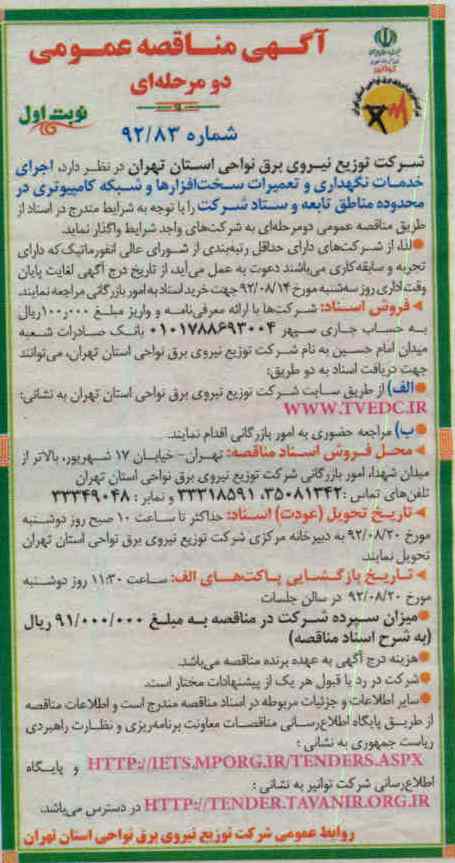 آگهی مناقصه عمومی
دو مرحله‌ای
نوبت اول
شماره ۹۲/۸۳
شرکت توزیع نیروی برق نواحی استان تهران در نظر دارد، اجرای
خدمات نگهداری و تعمیرات سخت‌افزارها و شبکه کامپیوتری در
محدوده مناطق تابعه و ستاد شرکت را با توجه به شرایط مندرج در اسناد از
طریق مناقصه عمومی دومرحله‌ای به شرکت‌های واجد شرایط واگذار نماید.
●لذا، از شرکت‌های دارای حداقل رتبه‌بندی از شورای عالی انفورماتیک که دارای
تجربه و سابقه کاری می‌باشند دعوت به عمل می‌آید، از تاریخ درج آگهی لغایت پایان
وقت اداری روز سه‌شنبه مورخ ۹۲/۰۸/۱۴ جهت خرید اسناد به امور بازرگانی مراجعه نمایند.
◄فروش اسناد: شرکت‌ها با ارائه معرفی‌نامه و واریز مبلغ ۱۰۰ر۰۰۰ریال
به حساب جاری سپهر ۰۱۰۱۷۸۸۶۹۳۰۰۴ بانک صادرات شعبه
میدان امام حسین به نام شرکت توزیع نیروی برق نواحی استان تهران، می‌توانند
جهت دریافت اسناد به دو طریق:
●الف) از طریق سایت شرکت توزیع نیروی برق نواحی استان تهران به نشانی:
WWW.TVEDC.IR
●ب) مراجعه حضوری به امور بازرگانی اقدام نمایند.
◄محل فروش اسناد مناقصه: تهران- خیابان ۱۷ شهریور، بالاتر از
میدان شهدا، امور بازرگانی شرکت توزیع نیروی برق نواحی استان تهران
تلفن‌های تماس: ۳۵۰۸۱۳۴۲، ۳۳۳۱۸۵۹۱ و نمابر: ۳۳۳۴۹۰۴۸
◄تاریخ تحویل (عودت) اسناد: حداکثر تا ساعت ۱۰ صبح روز دوشنبه
مورخ ۹۲/۰۸/۲۰ به دبیرخانه مرکزی شرکت توزیع نیروی برق نواحی استان تهران
تحویل نمایند.
◄تاریخ بازگشایی پاکت‌های الف: ساعت ۱۱:۳۰ روز دوشنبه
مورخ ۹۲/۰۸/۲۰ در سالن جلسات
●میزان سپرده شرکت در مناقصه به مبلغ ۹۱/۰۰۰/۰۰۰ ریال
(به شرح اسناد مناقصه)
●هزینه درج آگهی به عهده برنده مناقصه می‌باشد.
●شرکت در رد یا قبول هر یک از پیشنهادات مختار است.
●سایر اطلاعات و جزئیات مربوطه در اسناد مناقصه مندرج است و اطلاعات مناقصه
از طریق پایگاه اطلاع‌رسانی مناقصات معاونت برنامه‌ریزی و نظارت راهبردی
ریاست جمهوری به نشانی:
HTTP://IETS.MPORG.IR/TENDERS.ASPX و پایگاه
اطلاع‌رسانی شرکت توانیر به نشانی:
HTTP://TENDER.TAVANIR.ORG.IR در دسترس می‌باشد.
روابط عمومی شرکت توزیع نیروی برق نواحی استان تهران